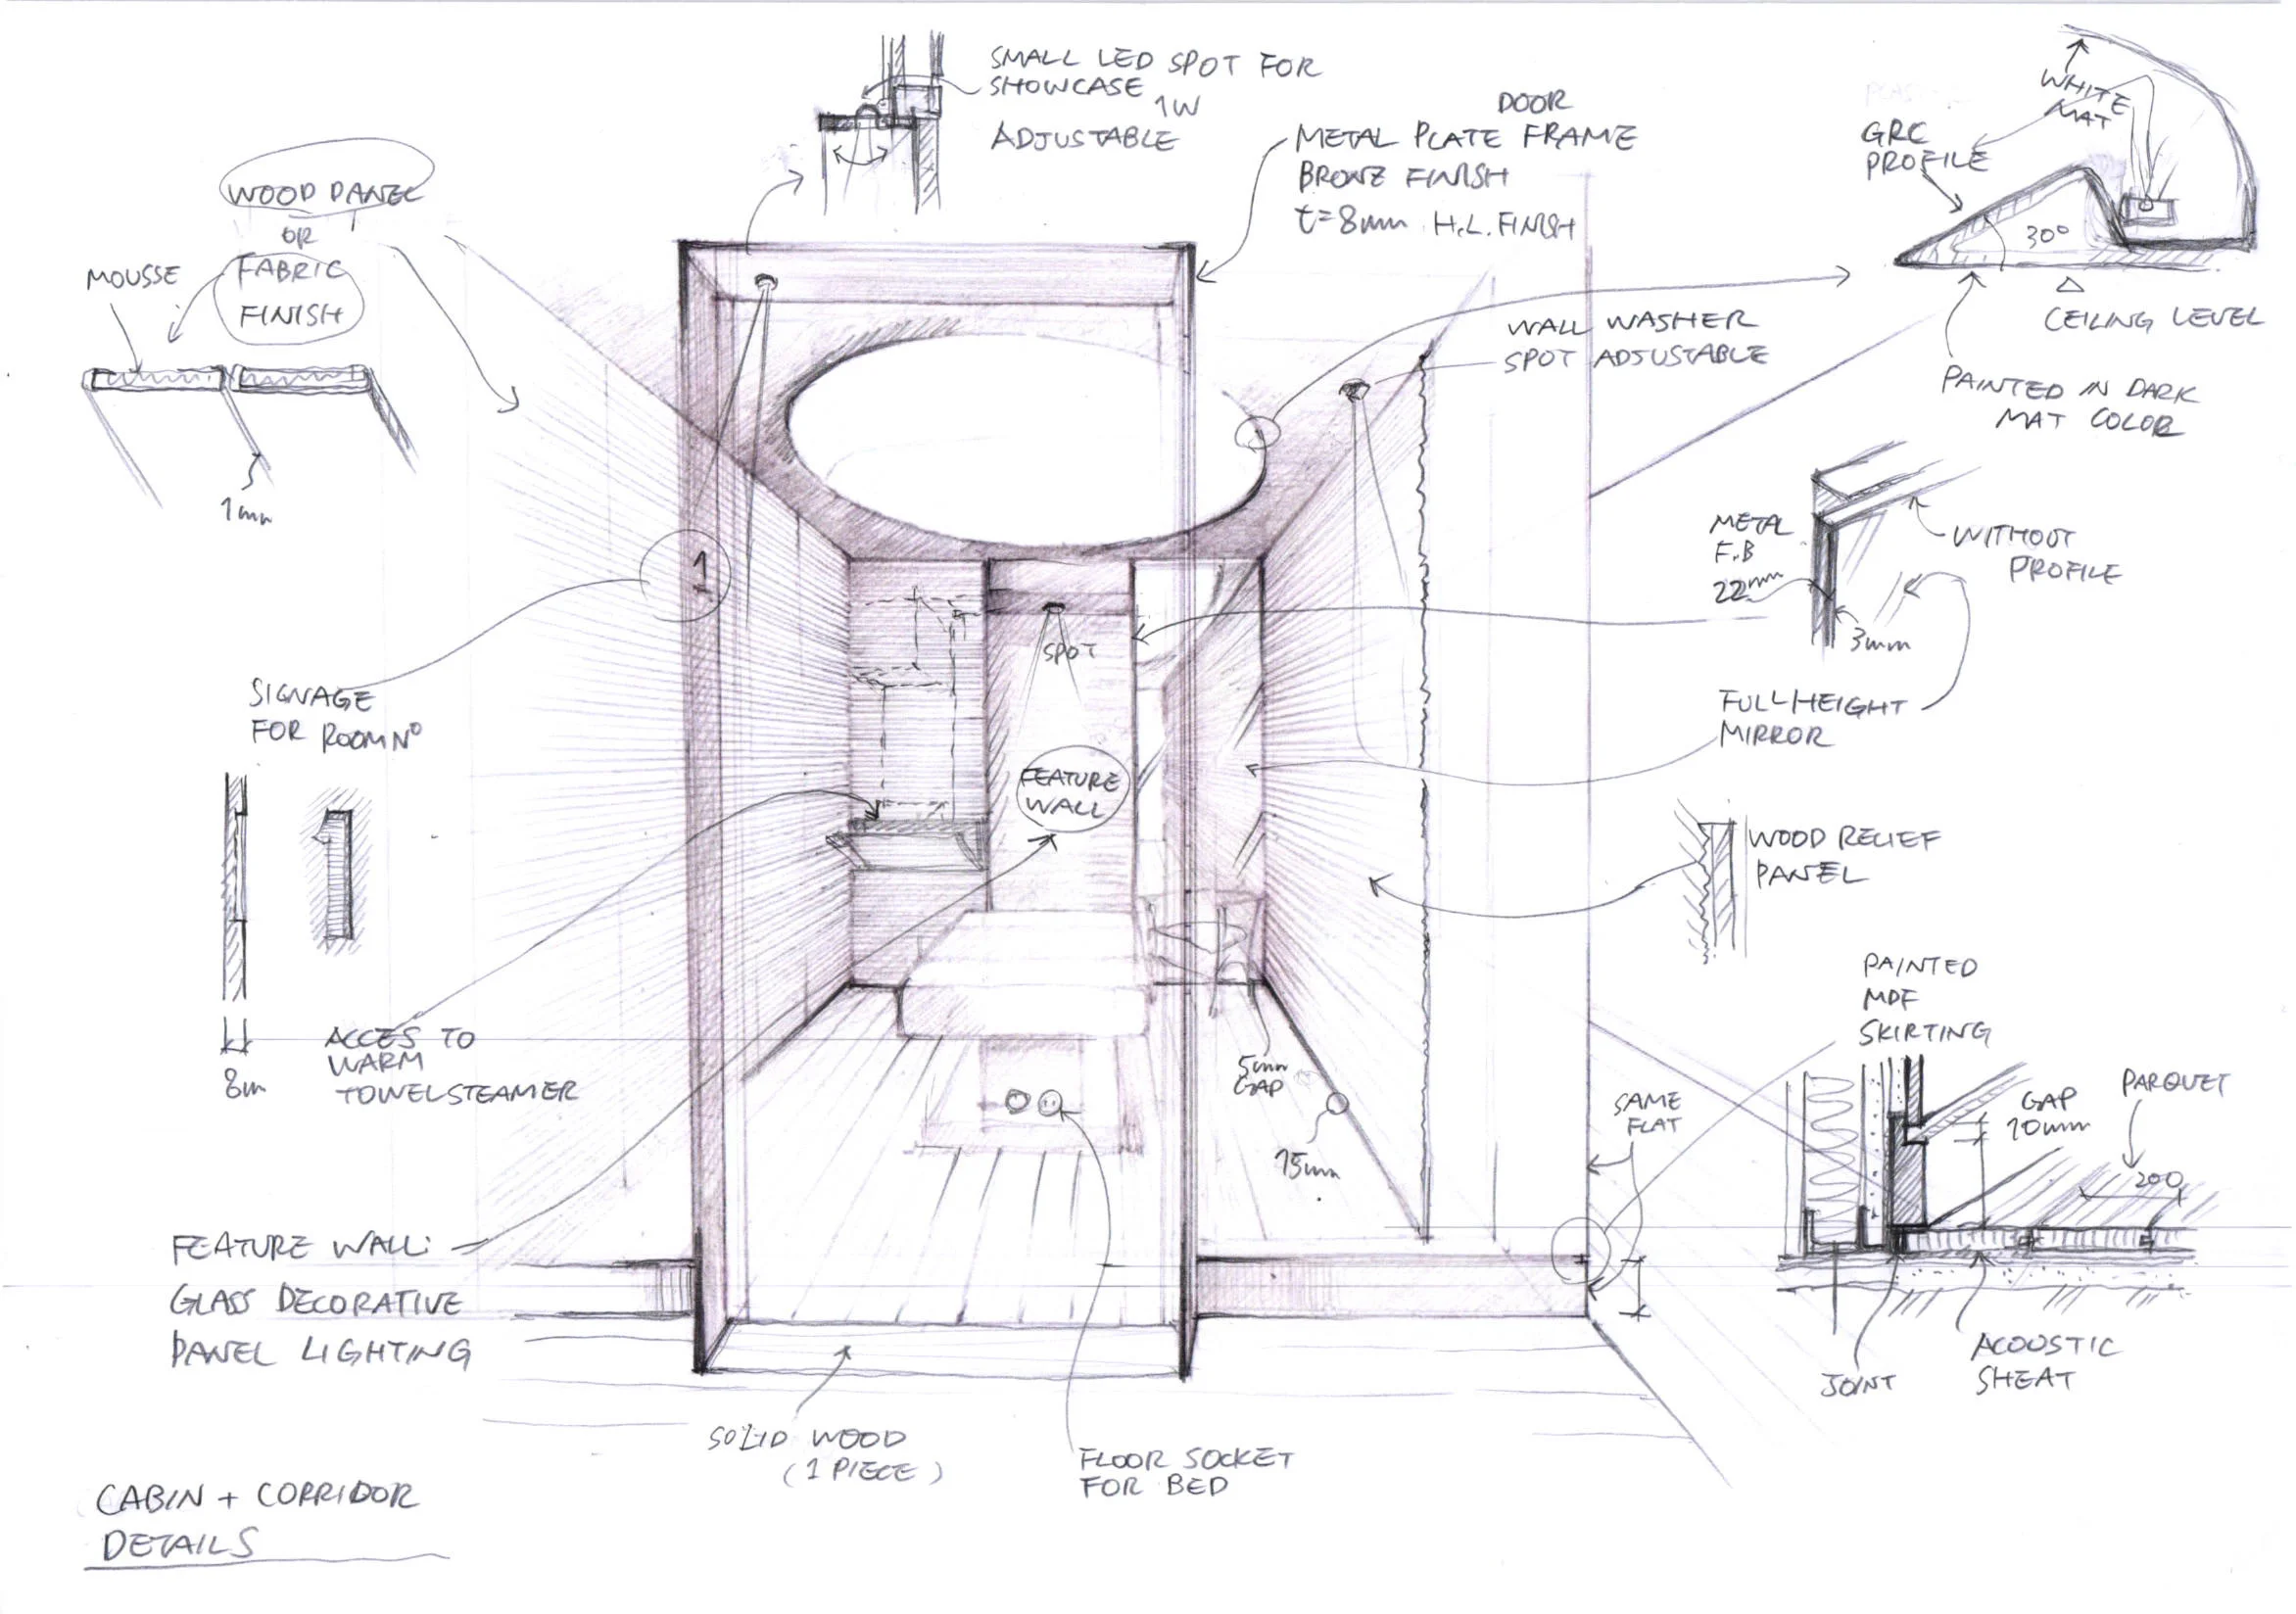 SMALL LED SPOT FOR
SHOWCASE
1W
ADJUSTABLE
DOOR
METAL PLATE FRAME
BRONZ FINISH
t=8mm H.L. FINISH
WHITE
MAT
GRC
PROFILE
30°
CEILING LEVEL
PAINTED IN DARK
MAT COLOR
WOOD PANEL
OR
FABRIC
FINISH
MOUSSE
1mm
WALL WASHER
SPOT ADJUSTABLE
METAL
F.B
22mm
WITHOUT
PROFILE
3mm
FULL HEIGHT
MIRROR
1
SPOT
FEATURE
WALL
SIGNAGE
FOR ROOM N°
1
8m
ACCES TO
WARM
TOWELSTEAMER
WOOD RELIEF
PANEL
PAINTED
MDF
SKIRTING
5mm
GAP
15mm
SAME
FLAT
GAP
10mm
PARQUET
200
JOINT
ACOUSTIC
SHEAT
FEATURE WALL:
GLASS DECORATIVE
PANEL LIGHTING
SOLID WOOD
(1 PIECE)
FLOOR SOCKET
FOR BED
CABIN + CORRIDOR
DETAILS